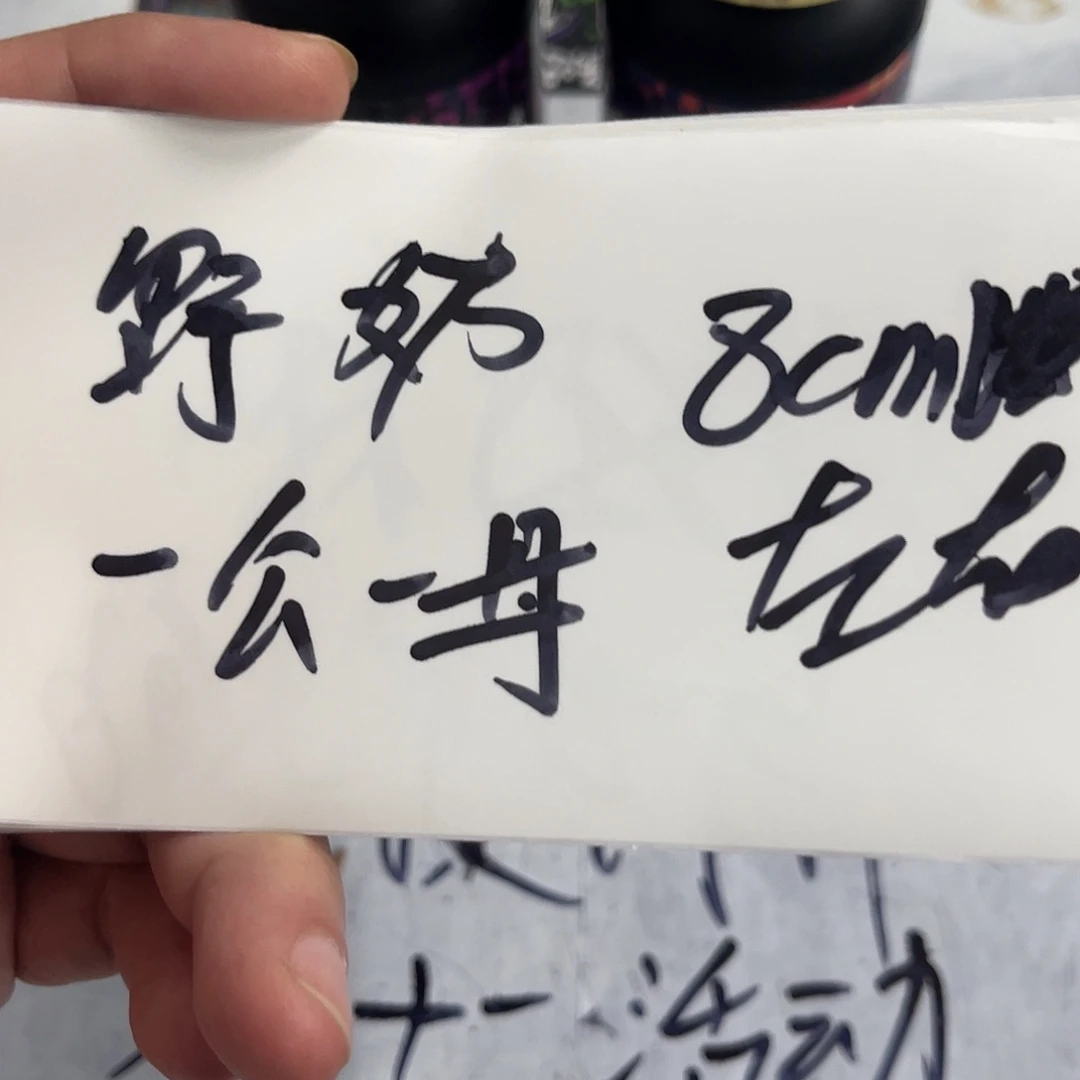 野奶 8cm
一公一母 左右
十一活动